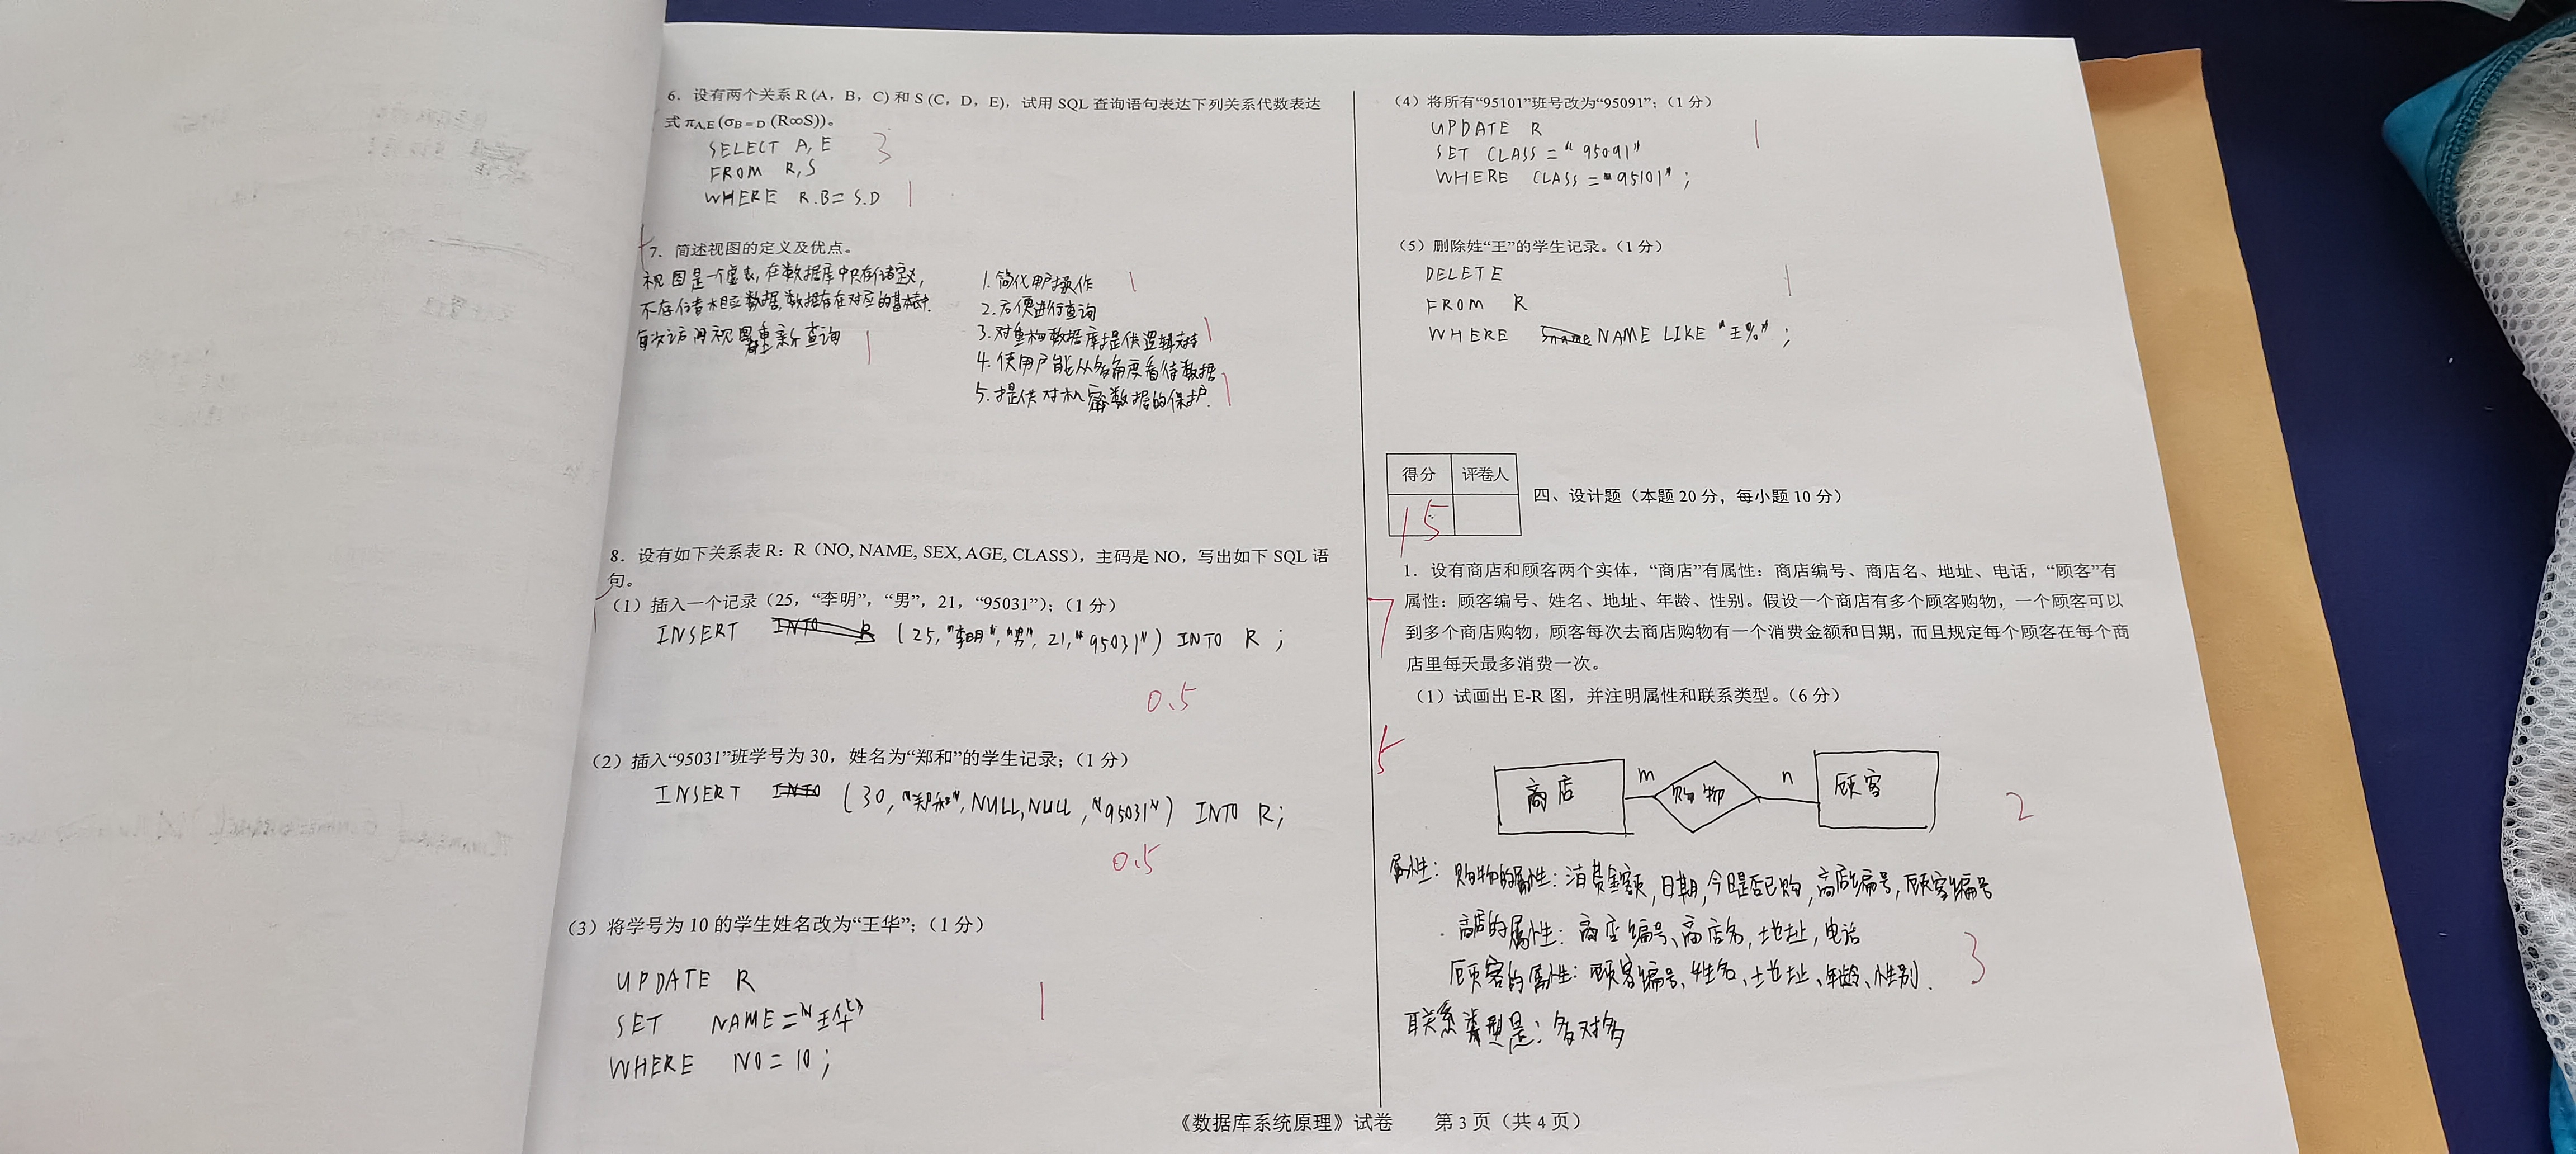 6．设有两个关系 R (A，B，C) 和 S (C，D，E)，试用 SQL 查询语句表达下列关系代数表达
式 πA,E (σB=D (R∞S))。
SELECT A, E
3
FROM R, S
WHERE R.B = S.D
1
7．简述视图的定义及优点。
视图是一个虚表，在数据库中只存储定义，
不存储相应数据，数据存在对应的基本表中.
每次访问视图重新查询
1
1. 简化用户操作
1
2. 方便进行查询
3. 对重构数据库提供逻辑支持
1
4. 使用户能从多角度看待数据
5. 提供对机密数据的保护.
1
8．设有如下关系表 R：R（NO, NAME, SEX, AGE, CLASS），主码是 NO，写出如下 SQL 语
句。
（1）插入一个记录（25，“李明”，“男”，21，“95031”）；（1 分）
INSERT INTO R (25, "李明", "男", 21, "95031") INTO R ;
0.5
（2）插入“95031”班学号为 30，姓名为“郑和”的学生记录；（1 分）
INSERT INTO (30, "郑和", NULL, NULL, "95031") INTO R;
0.5
（3）将学号为 10 的学生姓名改为“王华”；（1 分）
UPDATE R
SET NAME = "王华"
1
WHERE NO = 10 ;
（4）将所有“95101”班号改为“95091”；（1 分）
UPDATE R
1
SET CLASS = "95091"
WHERE CLASS = "95101" ;
（5）删除姓“王”的学生记录。（1 分）
DELETE
1
FROM R
WHERE Sname NAME LIKE "王%" ;
得分 评卷人
15
四、设计题（本题 20 分，每小题 10 分）
1．设有商店和顾客两个实体，“商店”有属性：商店编号、商店名、地址、电话，“顾客”有
7
属性：顾客编号、姓名、地址、年龄、性别。假设一个商店有多个顾客购物，一个顾客可以
到多个商店购物，顾客每次去商店购物有一个消费金额和日期，而且规定每个顾客在每个商
店里每天最多消费一次。
（1）试画出 E-R 图，并注明属性和联系类型。（6 分）
5
商店 m 购物 n 顾客
2
属性：购物的属性：消费金额，日期，今日是否已购，商店编号，顾客编号
商店的属性：商店编号、商店名，地址，电话
顾客的属性：顾客编号、姓名、地址、年龄、性别.
3
联系类型是：多对多
《数据库系统原理》试卷 第 3 页（共 4 页）